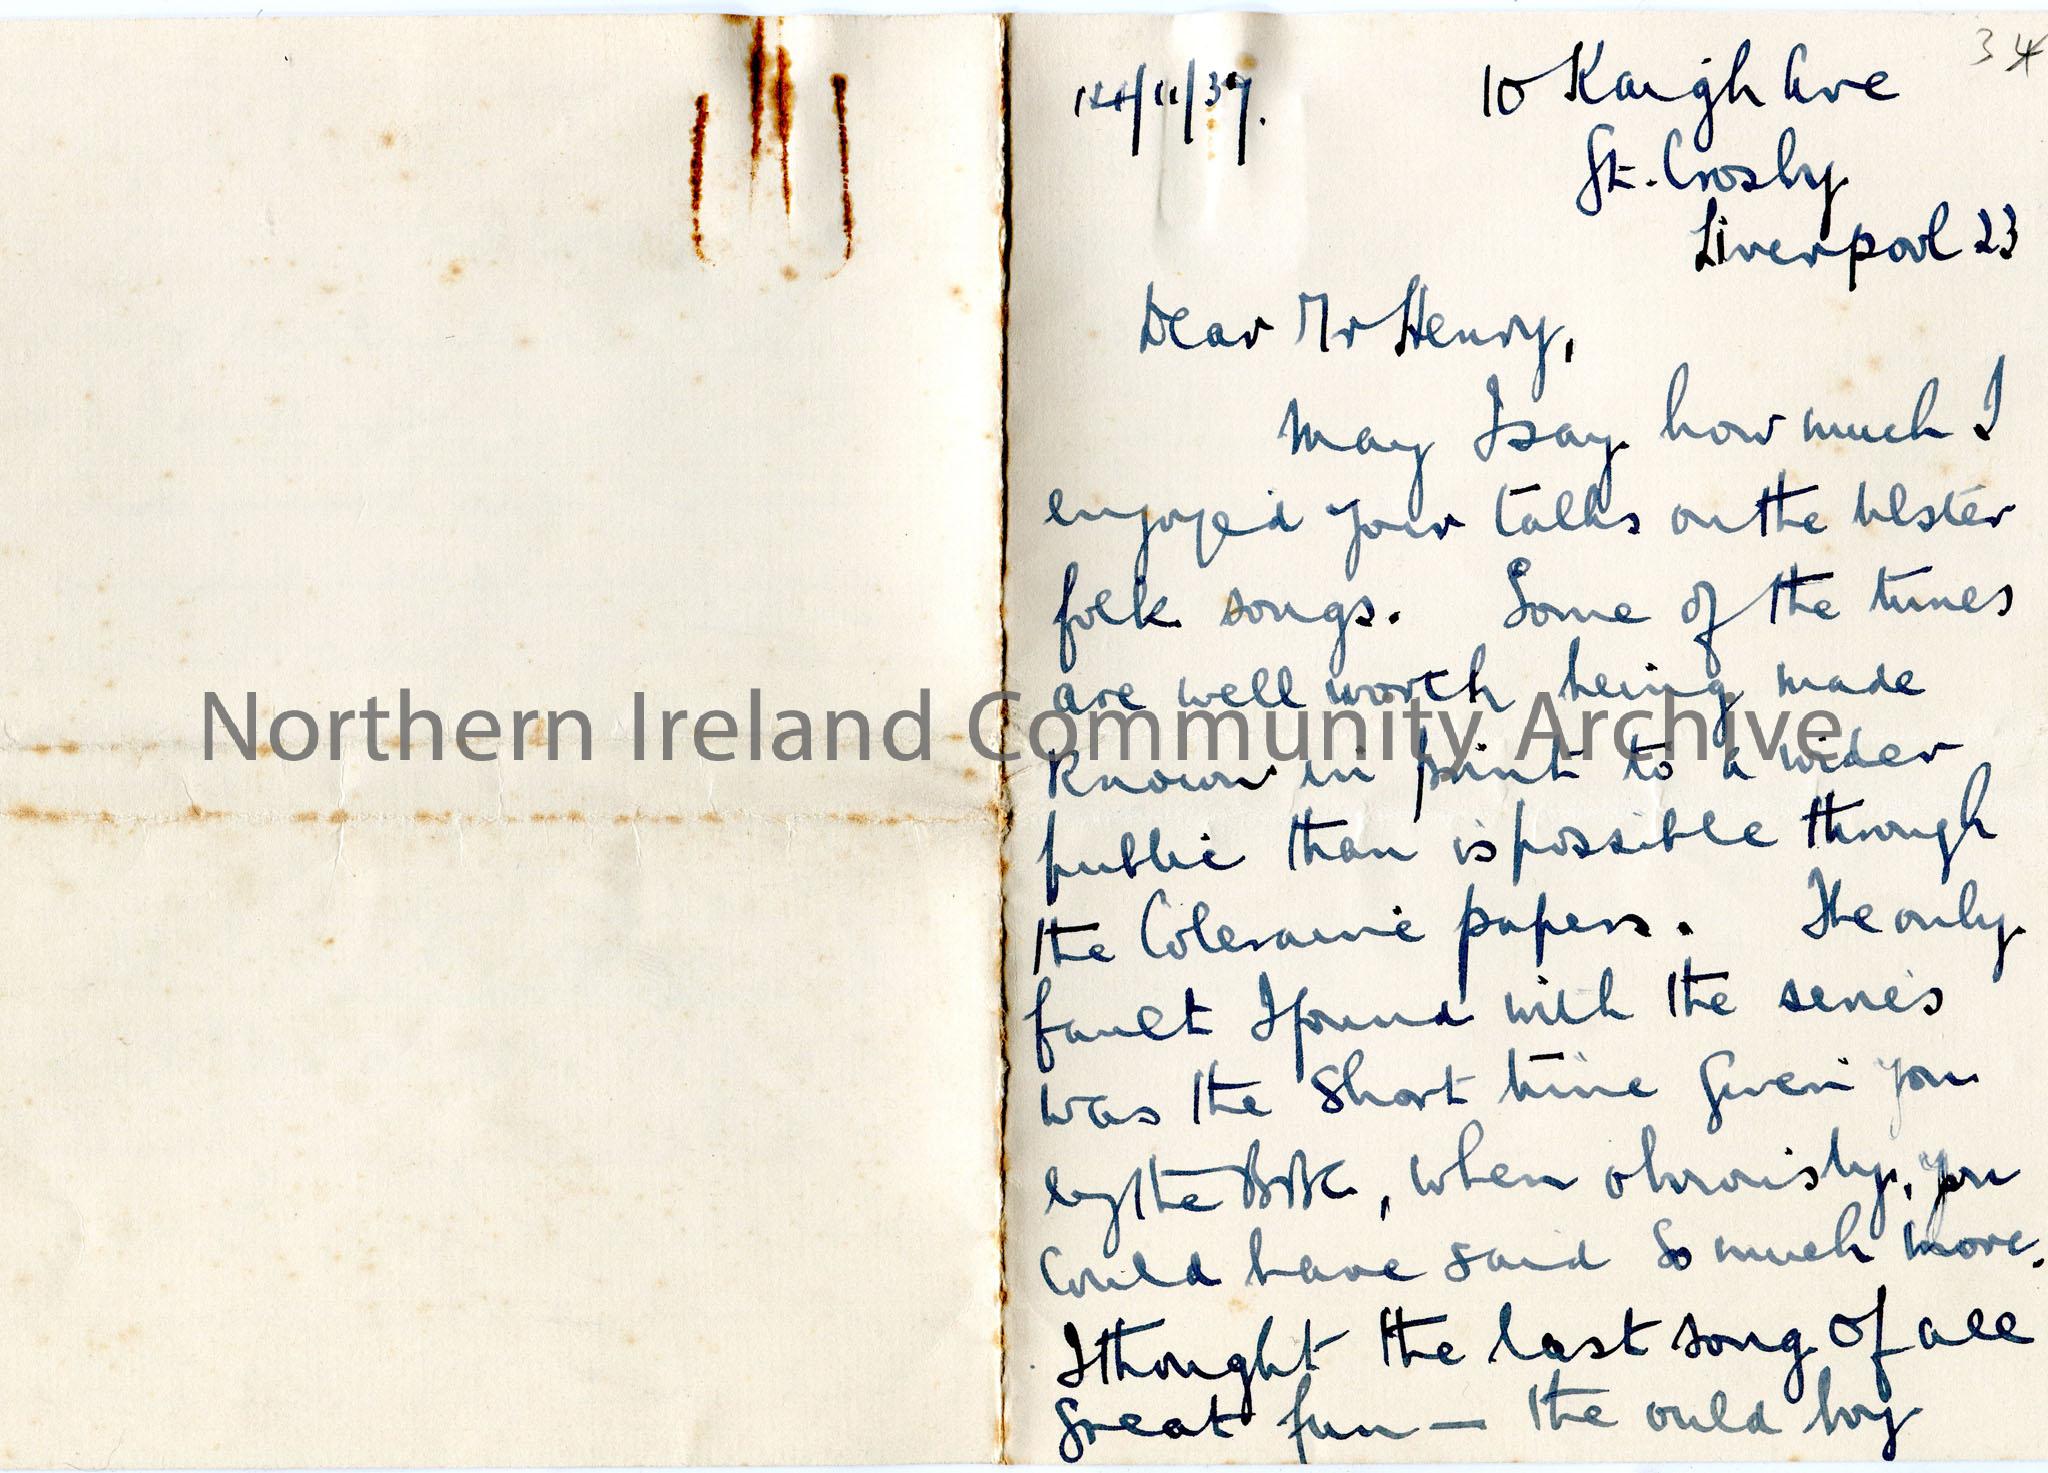 34
10 Kaigh Ave
Gt. Crosby
Liverpool 23
/11/37.
Dear Mr Henry,
May I say how much I
enjoyed your talks on the Ulster
folk songs. Some of the tunes
are well worth being made
known in print to a wider
public than is possible through
the Coleraine papers. The only
fault I found with the series
was the short time given you
by the BBC, when obviously, you
could have said so much more.
I thought the last song of all
great fun — the ould boy
Northern Ireland Community Archive